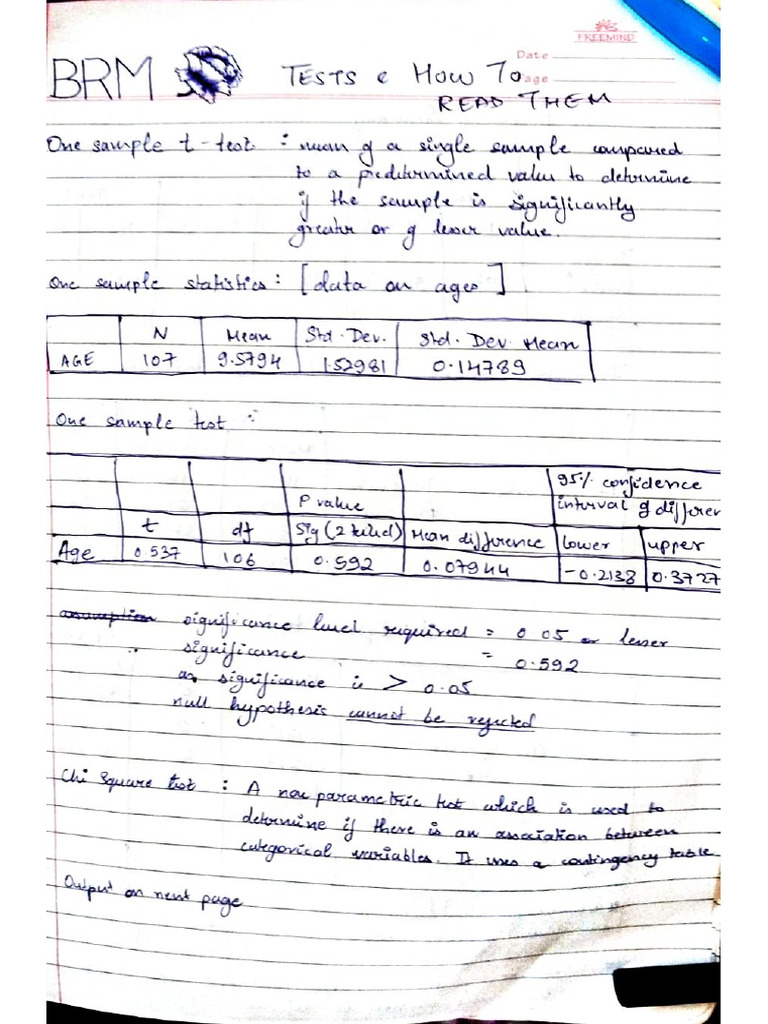 FREEMIND
Date
Page
BRM TESTS & HOW TO
READ THEM
One sample t-test : mean of a single sample compared
to a predetermined value to determine
if the sample is significantly
greater or of lesser value.
One sample statistics : [data on ages]
N Mean Std. Dev. Std. Dev Mean
AGE 107 9.5794 1.52981 0.14789
One sample test :
95% confidence
P value interval of differen
t df Sig (2 tailed) Mean difference lower upper
Age 0.537 106 0.592 0.07944 -0.2138 0.3727
assumption significance level required = 0.05 or lesser
∴ significance = 0.592
as significance is > 0.05
null hypothesis cannot be rejected
Chi Square test : A non parametric test which is used to
determine if there is an association between
categorical variables. It uses a contingency table
Output on next page